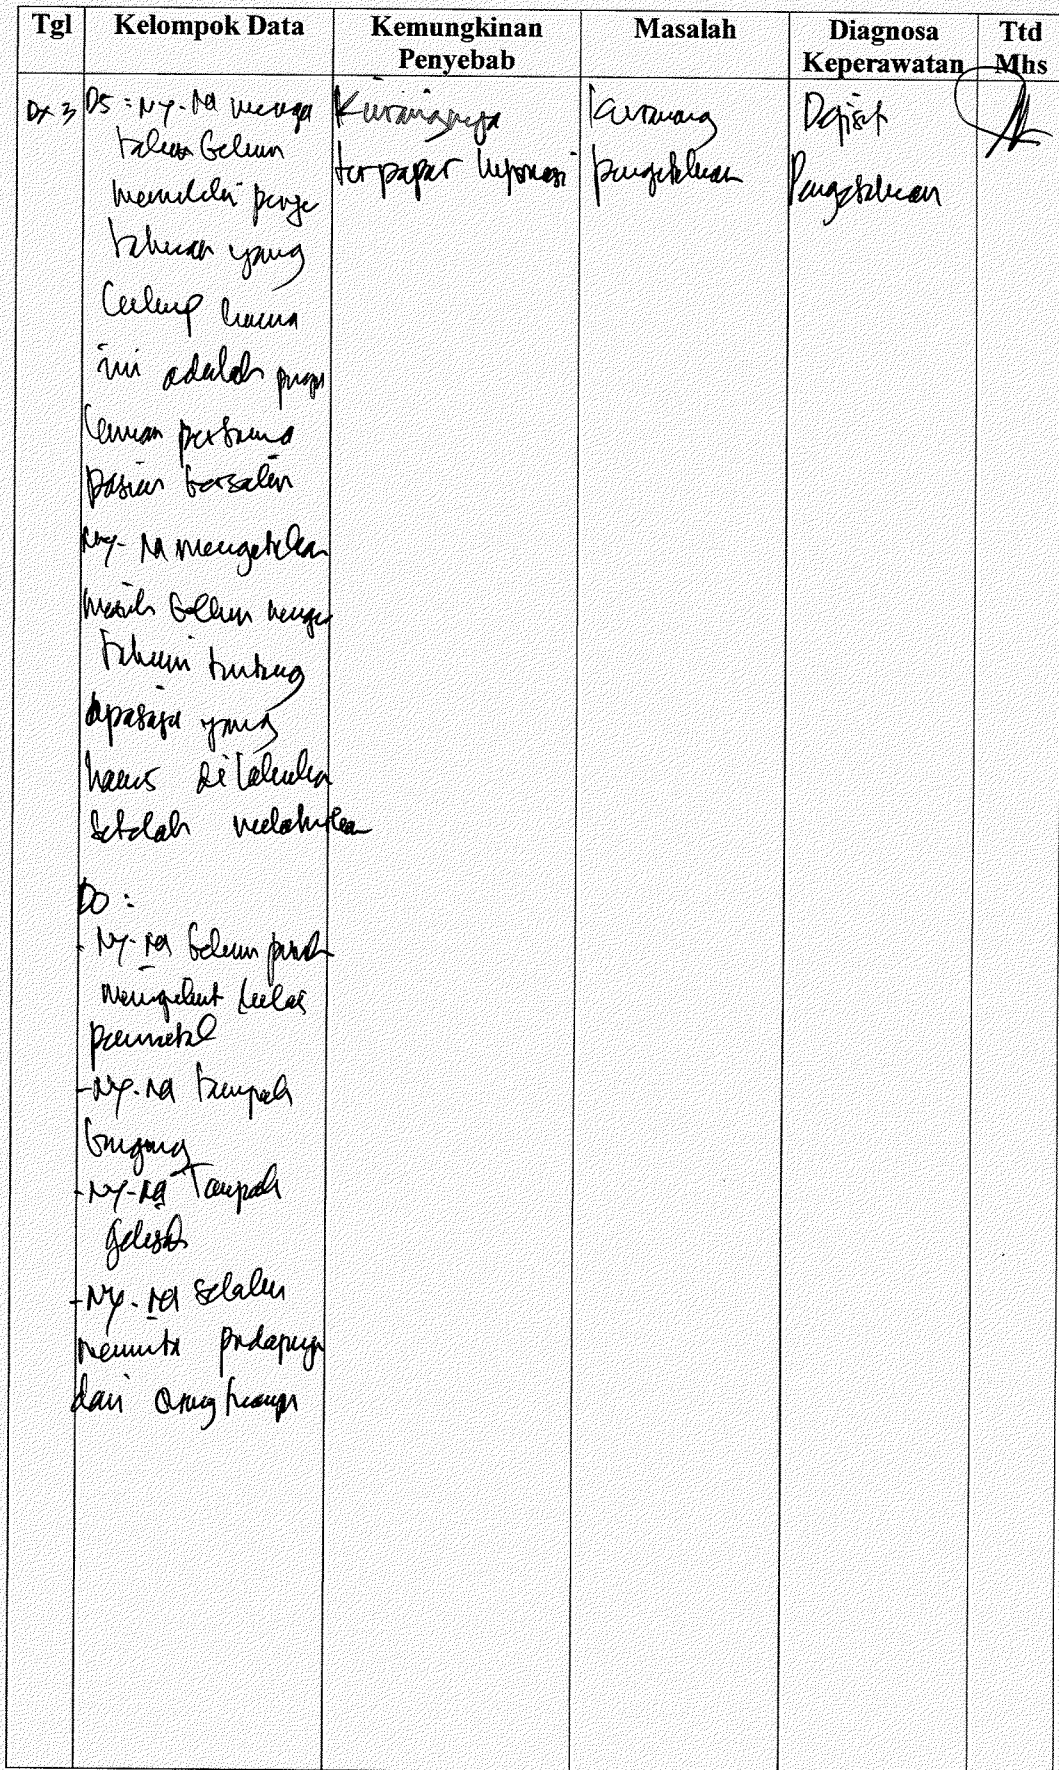 Tgl Kelompok Data Kemungkinan Penyebab Masalah Diagnosa Keperawatan Ttd Mhs
Dx 3
DS : Ny. Na menga
takan belum
memiliki penge
tahuan yang
cukup karena
ini adalah peng
laman pertama
pasien bersalin
Ny. Na mengatakan
masih belum menge
tahui tentang
apasaja yang
harus dilakukan
setelah melahirkan
DO :
- Ny. Na belum pernah
mengikuti kelas
prenatal
- Ny. Na tampak
bingung
- Ny. Na Tampak
gelisah
- Ny. Na selalu
meminta
dari orang
Kurangnya
terpapar Informasi
kurang
pengetahuan
Defisit
Pengetahuan